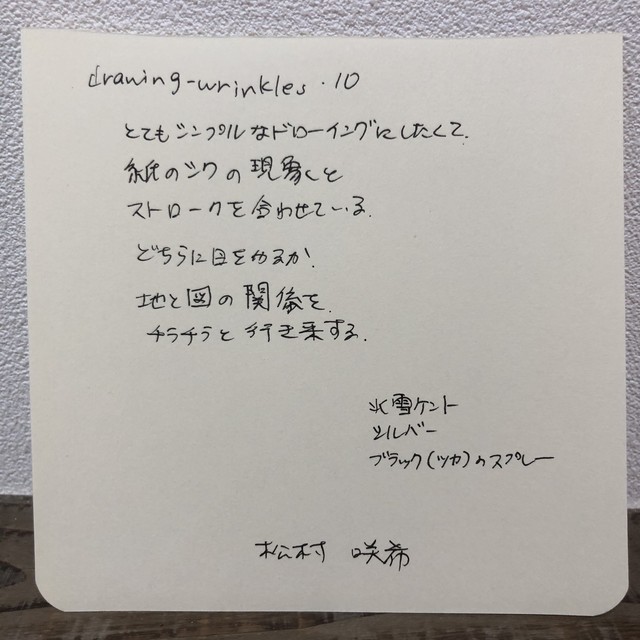 drawing-wrinkles.10
とてもシンプルなドローイングにしたくて.
紙のシワの現象と
ストロークを合わせている.
どちらに目をやるか.
地と図の関係を.
チラチラと行き来する.
氷雪ケント
シルバー
ブラック(ツヤ)のスプレー
松村 咲希